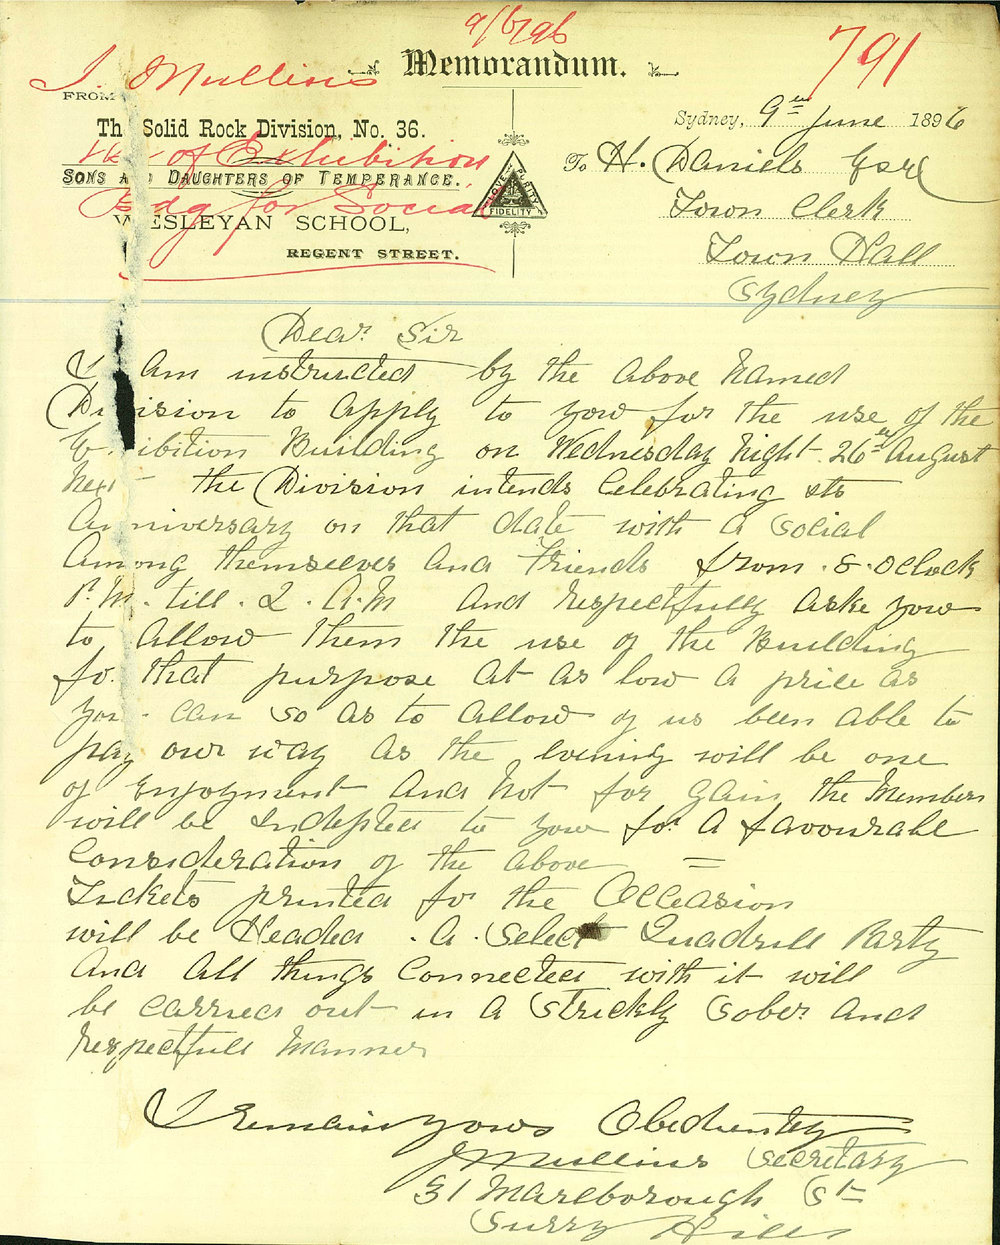 9/6/96
791
J. Mullins
Memorandum.
FROM
The Solid Rock Division, No. 36.
Use of Exhibition
SONS AND DAUGHTERS OF TEMPERANCE.
Bdg for Social
WESLEYAN SCHOOL,
REGENT STREET.
LOVE PURITY
FIDELITY
Sydney, 9th June 1896
To H. Daniels Esqr
Town Clerk
Town Hall
Sydney
Dear Sir
I am instructed by the above named
Division to apply to you for the use of the
Exhibition Building on Wednesday Night 26th August
Next the Division intends Celebrating its
Anniversary on that date with a Social
Among themselves and Friends from . 8 . oclock
P.M. till . 2 . A.M and respectfully aske you
to allow them the use of the Building
for that purpose at as low a price as
you can so as to allow of us been able to
pay our way as the evening will be one
of Enjoyment and Not for gain the Members
will be Indepted to you for a favourable
Consideration of the above =
Tickets printed for the Occasion
will be Headed . A . Select Quadrill Party
And All things Connected with it will
be carried out in a Strickly Sober and
respectfull Manner
I Remain yours Obediently
J Mullins Secretary
31 Marlborough St
Surry Hills